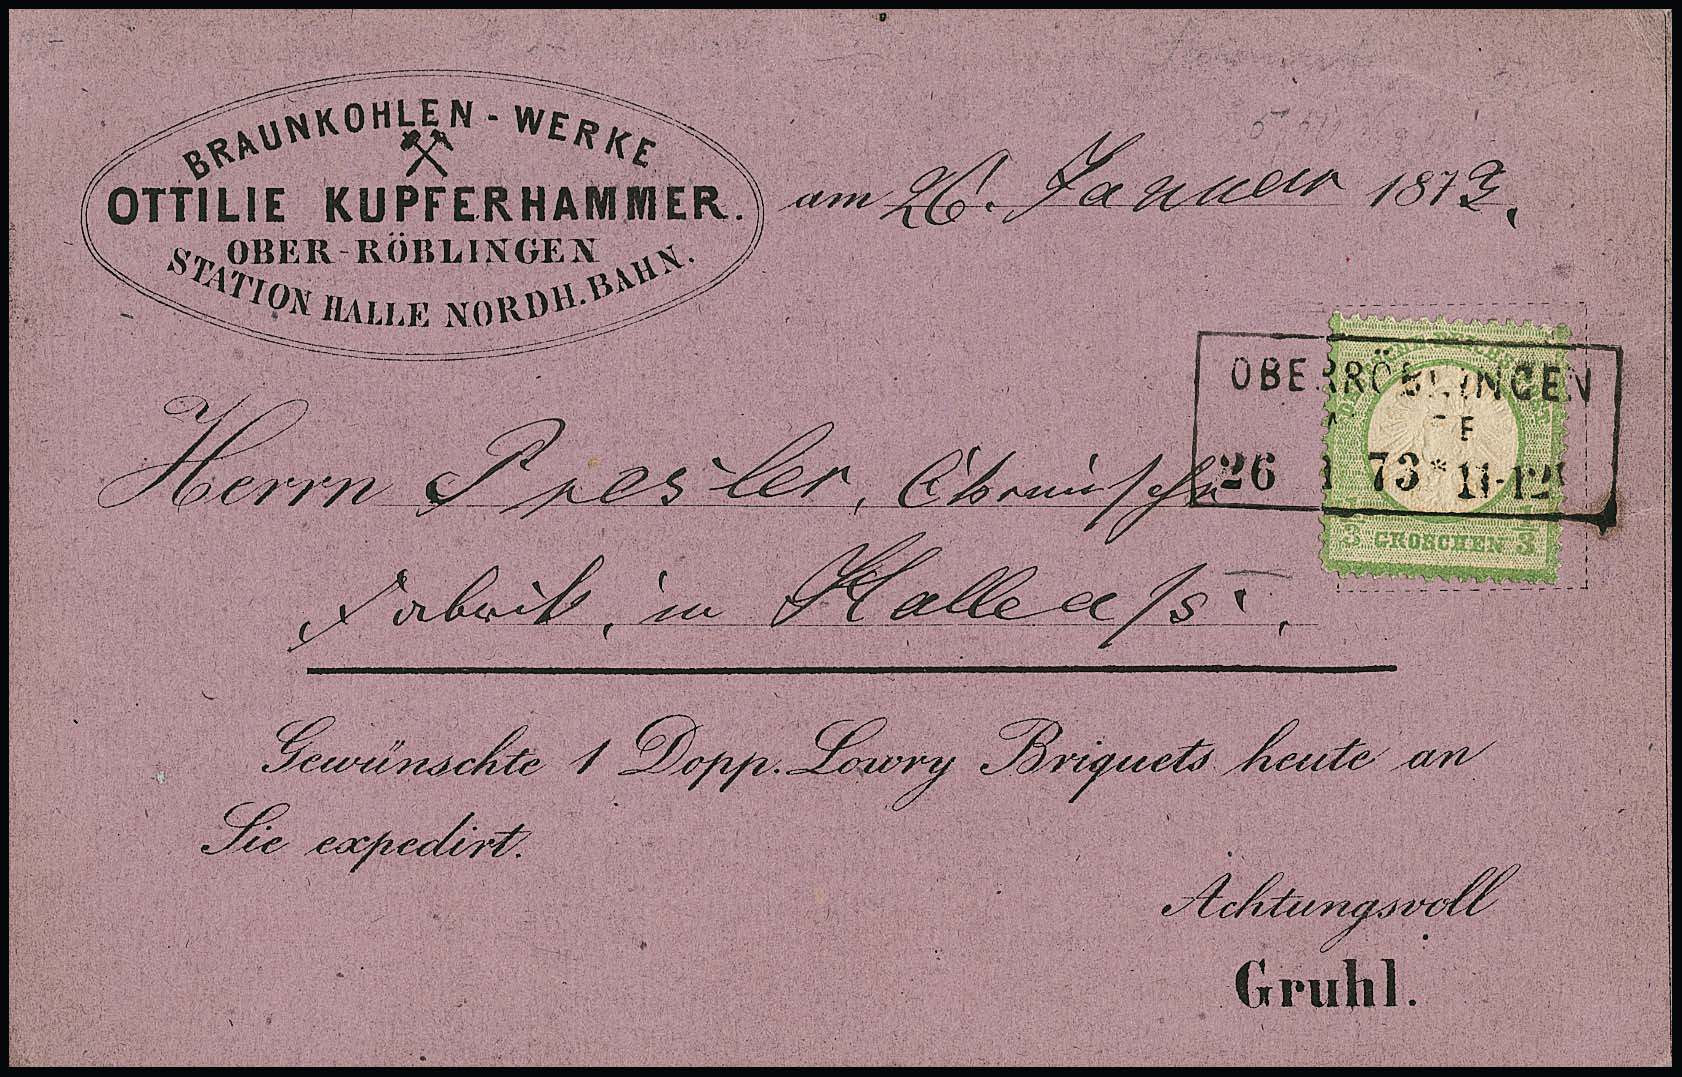 BRAUNKOHLEN - WERKE
OTTILIE KUPFERHAMMER.
OBER-RÖBLINGEN
STATION HALLE NORDH. BAHN.
am 26. Januar 1873.
OBERRÖBLINGEN
26 1 73 * 11-12
1/3 GROSCHEN 1/3
Herrn Presler, Chemische
Fabrik, in Halle a/s.
Gewünschte 1 Dopp. Lowry Briquets heute an
Sie expedirt.
Achtungsvoll
Gruhl.